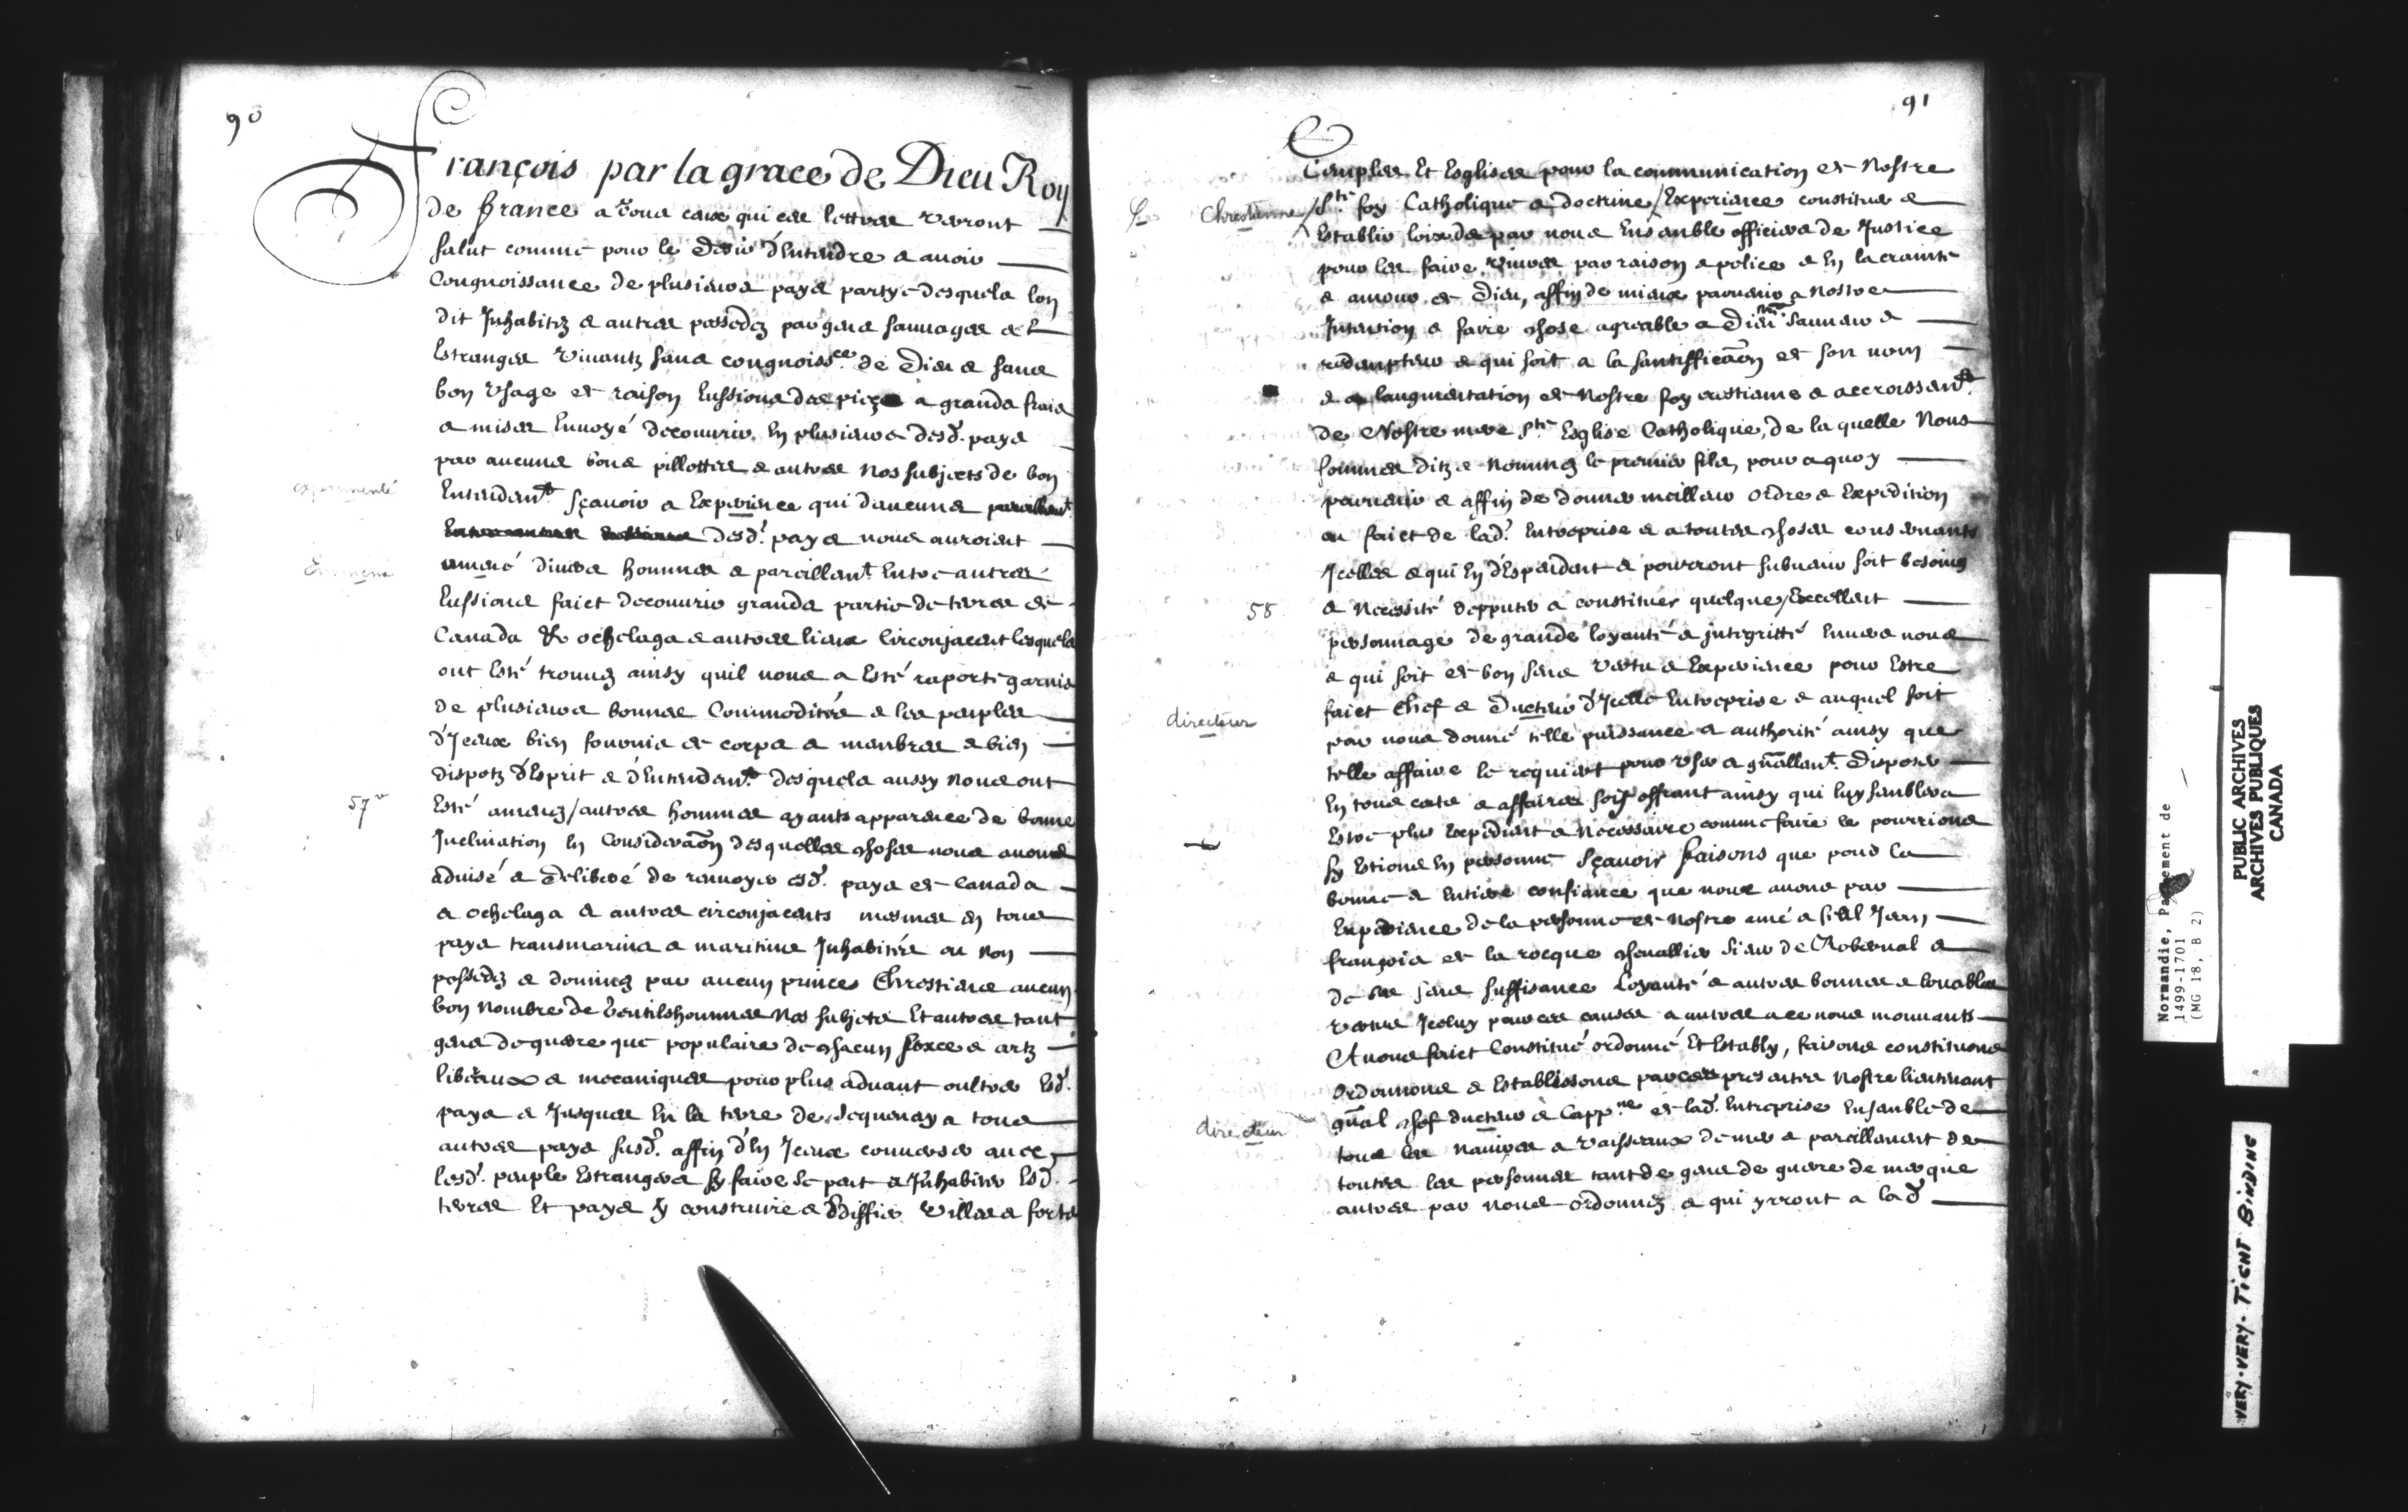 90
François par la grace de Dieu Roy
de france a Tous ceux qui ces lettres verront
salut comme pour le desir d'Entendre & avoir
Congnoissance de plusieurs pays partye desquels lon
dit Inhabitez & autres possedez par gens sauvages &
Estranges vivantz sans congnoissce. de Dieu & sans
bon usage et raison Eussions des pieça a grands frais
& mises Envoyé decouvrir En plusieurs desd. pays
par aucuns bons pillottes & autres Nos subjects de bon
experimenté
Entendemt sçavoir & Experience qui daucuns
desd. pays nous auroient
Emmené
amené divers hommes & pareillemt. Entre autres
Eussions faict decouvrir grande partie de terres de
Canada & ochelaga & autres lieux Circonjacent lesquels
ont Esté trouvez ainsy quil nous a Esté raporté garnis
de plusieurs bonnes Commoditéz & les peuples
d'Iceux bien fournis de corps & membres & bien
dispotz d'Esprit & d'Entendemt. desquels aussy nous ont
57v
Esté amenez/autres hommes ayants apparence de bonne
Inclination En Consideraõn desquelles choses nous avons
advisé & deliberé de renvoyer esd. pays de Canada
& ochelaga & autres circonjacents mesmes en tous
pays transmarins & maritime Inhabitéz ou non
possedez & dominez par aucun princes Chrestiens aucun
bon nombre de Gentilshommes Nos subjets Et autres tant
gens de guerre que populaire de chacun sexce & artz
liberaux & mecaniques pour plus advant oultre Esd.
pays & Jusques En la terre de Sequenay & tous
autres pays susd. affin d'En Iceux converser avec
lesd. peuple Estrangers sy faire se peut & Inhabiter Esd.
terres Et pays y construire & Ediffier villes & forts
91
Temples Et Esglises pour la communication de Nostre
Chrestienne
/Ste. foy Catholique & doctrine/Experience constituer &
Establir loix de par nous Ensemble officiers de Justice
pour les faire vivres par raison & police & En la crainte
& amour de Dieu, affin de mieux parvenir a Nostre
Intention & faire chose agreable a Dieu Nre. Sauveur &
redempteur & qui soit a la santifficaõn de son nom
& a laugmentation de Nostre foy crestienne & accroissemt.
de Nostre mere Ste. Esglise Catholique, de la quelle Nous
sommes ditz & Nommez le premier fils, pour a quoy
parvenir & affin de donner meilleur ordre & Expedition
au faict de lad. Entreprise & a toutes choses concernants
Icelles & qui En d'Espendent & pourront subvenir soit besoing
58
& Necessité depputer & constituer quelque/Excellent
personnage de grande loyauté & jntegritté Envers nous
& qui soit de bon sens vertu & Experience pour Estre
directeur
faict Chef & Ducteur d'Icelle Entreprise & auquel soit
par nous donné telle puissance & authorité ainsy que
telle affaire le requiert pour user & gñallemt. disposer
En tous cas & affaires soy offrant ainsy qui luy semblera
Estre plus Expedient & Necessaire comme faire le pourrions
sy Estions En personne Sçavoir faisons que pour la
bonne & Entiere confiance que nous avons par
Experience de la personne de Nostre amé & feal Jean
françois de la rocque chevallier Sieur de Roberval &
de ses sens suffisance loyauté & autres bonnes & louables
vertus Iceluy pour ces causes & autres a ce nous mouvants
Avons faict Constitué ordonné Et Estably, faisons constituons
ordonnons & Establissons par ces presentes Nostre lieutenant
directeur
gñal chef ducteur & Cappne. de lad. Entreprise Ensemble de
tous les Navires & vaisseaux de mer & pareillement de
toutes les personnes tant de gens de guerre de mer que
autres par nous ordonnez & qui yrront a lad
Normandie, Parlement de
1499-1701
(MG 18, B 2)
PUBLIC ARCHIVES
ARCHIVES PUBLIQUES
CANADA
VERY-VERY-TIGHT BINDING